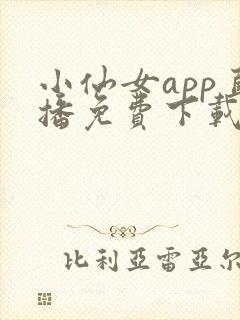 小仙女app
播免费下载
比利亚雷亚尔